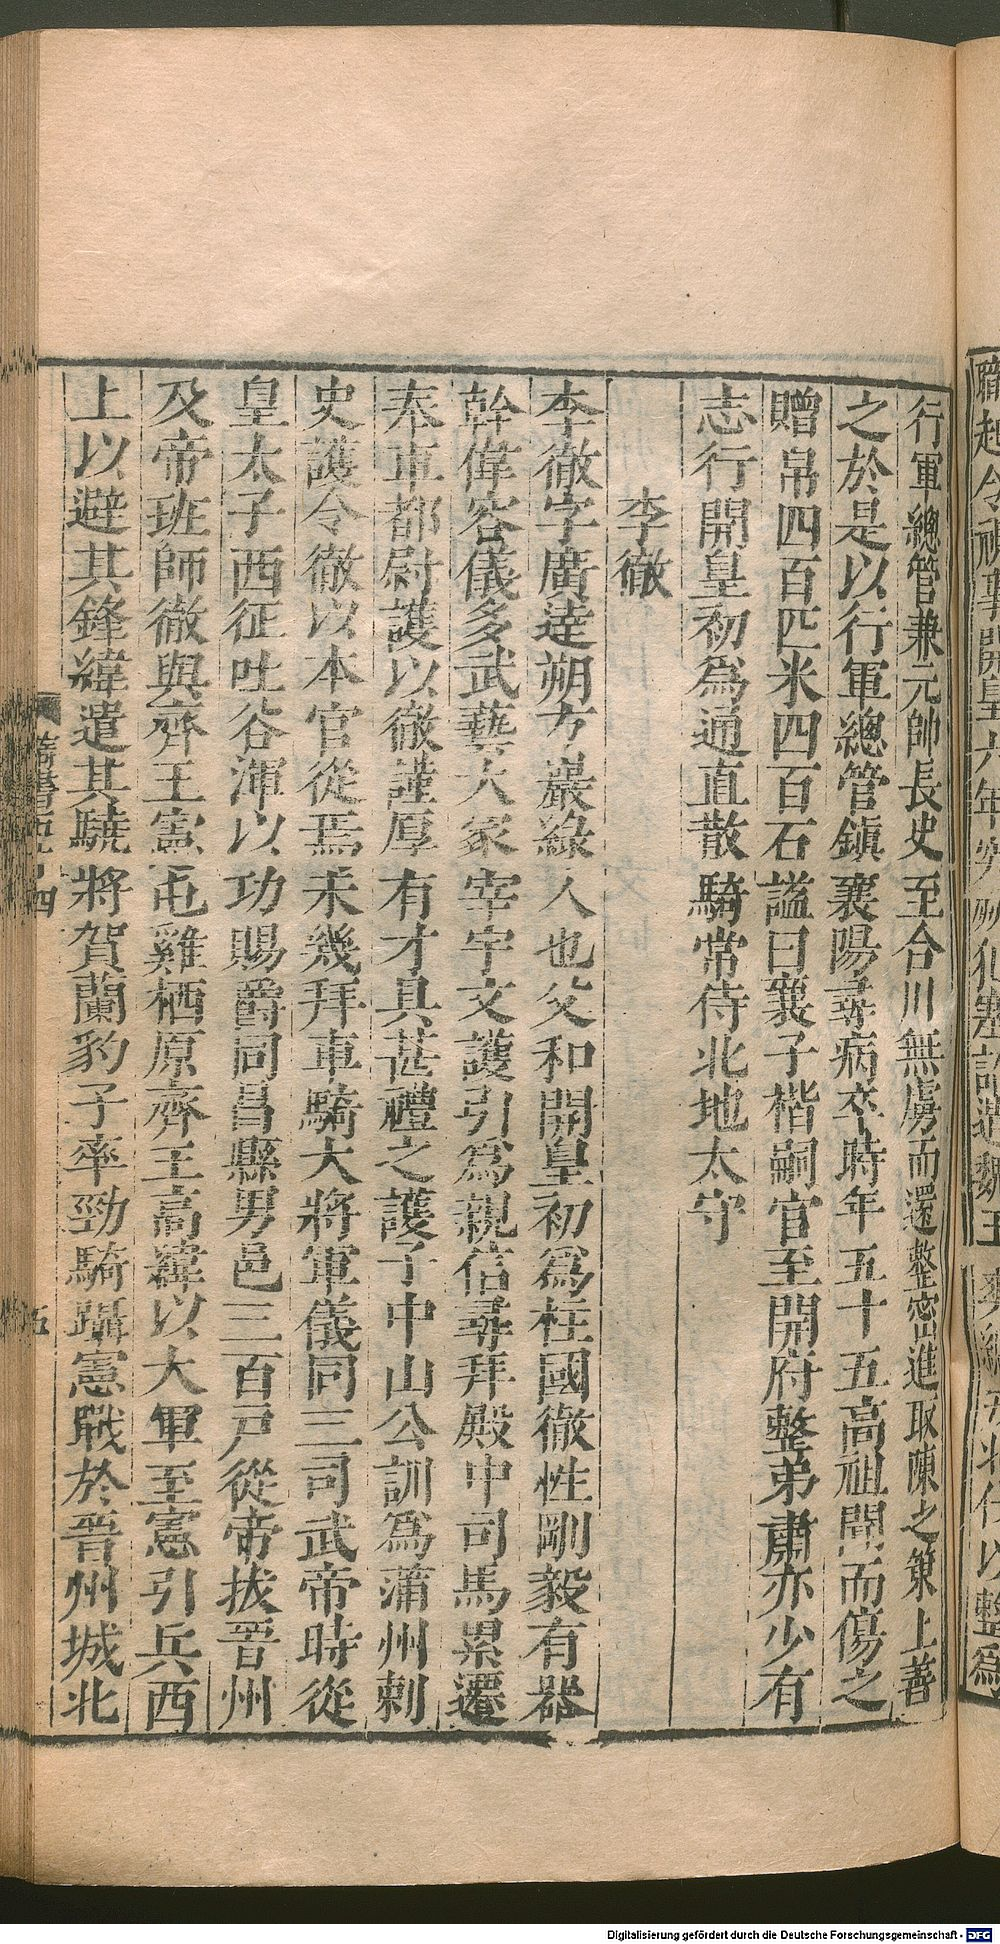 行軍總管兼元帥長史至合川無虜而還整密進取陳之策上善
之於是以行軍總管鎮襄陽尋病卒時年五十五高祖聞而傷之
贈帛四百匹米四百石謚曰襄子楷嗣官至開府整弟肅亦少有
志行開皇初爲通直散騎常侍北地太守
李徹
李徹字廣達朔方巖綠人也父和開皇初爲柱國徹性剛毅有器
幹偉容儀多武藝大冢宰宇文護引爲親信尋拜殿中司馬累遷
奉車都尉護以徹謹厚有才具甚禮之護子中山公訓爲蒲州刺
史護令徹以本官從焉未幾拜車騎大將軍儀同三司武帝時從
皇太子西征吐谷渾以功賜爵同昌縣男邑三百戶從帝拔晋州
及帝班師徹與齊王憲屯雞栖原齊王高緯以大軍至憲引兵西
上以避其鋒緯遣其驍將賀蘭豹子率勁騎躡憲戰於晋州城北
Digitalisierung gefördert durch die Deutsche Forschungsgemeinschaft - DFG